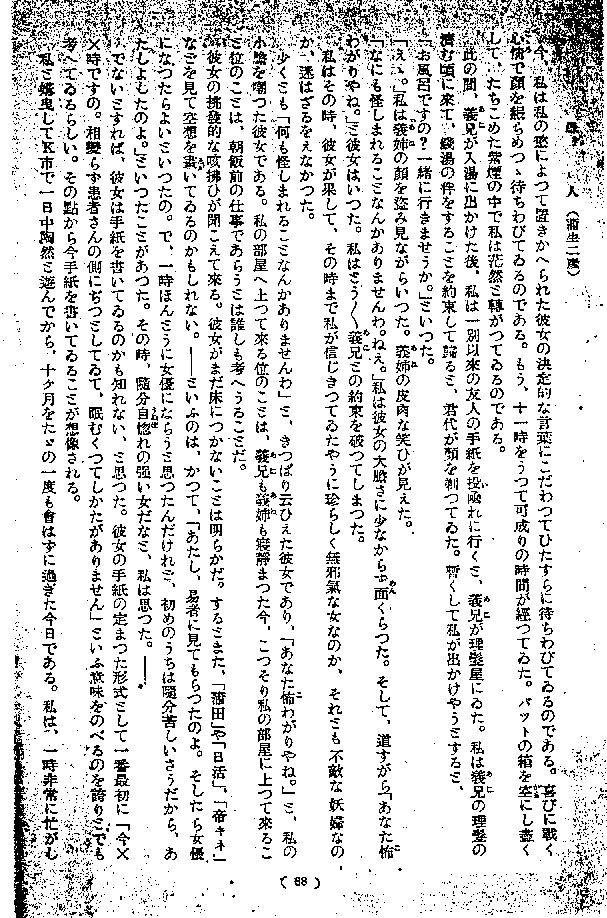 人（蒲生二歳）
今、私は私の慾によつて置きかへられた彼女の決定的な言葉にこだわつてひたすらに待ちわびてゐるのである。喜びに戰く
心怖で顔を紙らめつゝ待ちわびてゐるのである。もう、十一時をうつて可成りの時間が經つてゐた。バットの箱を空にし盡く
して、たちこめた紫煙の中で私は茫然と轉がつてゐるのである。
此の間、義兄が入湯に出かけた後、私は一別以來の友人の手紙を投凾れに行くと、義兄が理髮屋にゐた。私は義兄の理髮の
濟む頃に來て、錢湯の伴をすることを約束して歸ると、君代が顔を剃つてゐた。暫くして私が出かけやうとすると、
「お風呂ですの？一緖に行きませうか。」といつた。
「えゝ」私は義姉の顔を盗み見ながらいつた。義姉の皮肉な笑ひが見えた。
「なにも怪しまれることなんかありませんわ。ねえ。」私は彼女の大膽さに少なからず面くらつた。そして、道すがら「あなた怖
わがりやね。」と彼女はいつた。私はとう／＼義兄との約束を破つてしまつた。
私はその時、彼女が果して、その時まで私が信じきつてゐたやうに珍らしく無邪氣な女なのか、それとも不敵な妖婦なの
か、迷はざるをえなかつた。
少くとも「何も怪しまれることなんかありませんわ」と、きつぱり云ひえた彼女であり、「あなた怖わがりやね。」と、私の
小膽を嘲つた彼女である。私の部屋へ上つて來る位のことは、義兄も義姉も寢靜まつた今、こつそり私の部屋に上つて來るこ
と位のことは、朝飯前の仕事であらうとは誰しも考へうることだ。
彼女の挑發的な咳拂ひが聞こえて來る。彼女がまだ床につかないことは明らかだ。するとまた、「蒲田」や「日活」、「帝キネ」
などを見て空想を畫いてゐるのかもしれない。――といふのは、かつて、「あたし、易者に見てもらつたのよ。そしたら女優
になつたらよいといつたの。で、一時ほんとうに女優にならうと思つたんだけれど、初めのうちは隨分苦しいさうだから、あ
たしよしたのよ。」といつたことがあつた。その時、隨分自惚れの强い女だなと、私は思つた。――
でないとすれば、彼女は手紙を書いてゐるのかも知れない、と思つた。彼女の手紙の定まつた形式として一番最初に「今×
×時ですの。相變らず患者さんの側にぢつとしてゐて、眠むくつてしかたがありません」といふ意味をのべるのを誇りとでも
考へてゐるらしい。その點から今手紙を書いてゐることが想像される。
私と媾曳してＫ市で一日中陶然と遊んでから、十ケ月をたゞの一度も會はずに過ぎた今日である。私は、一時非常に忙がし
（88）